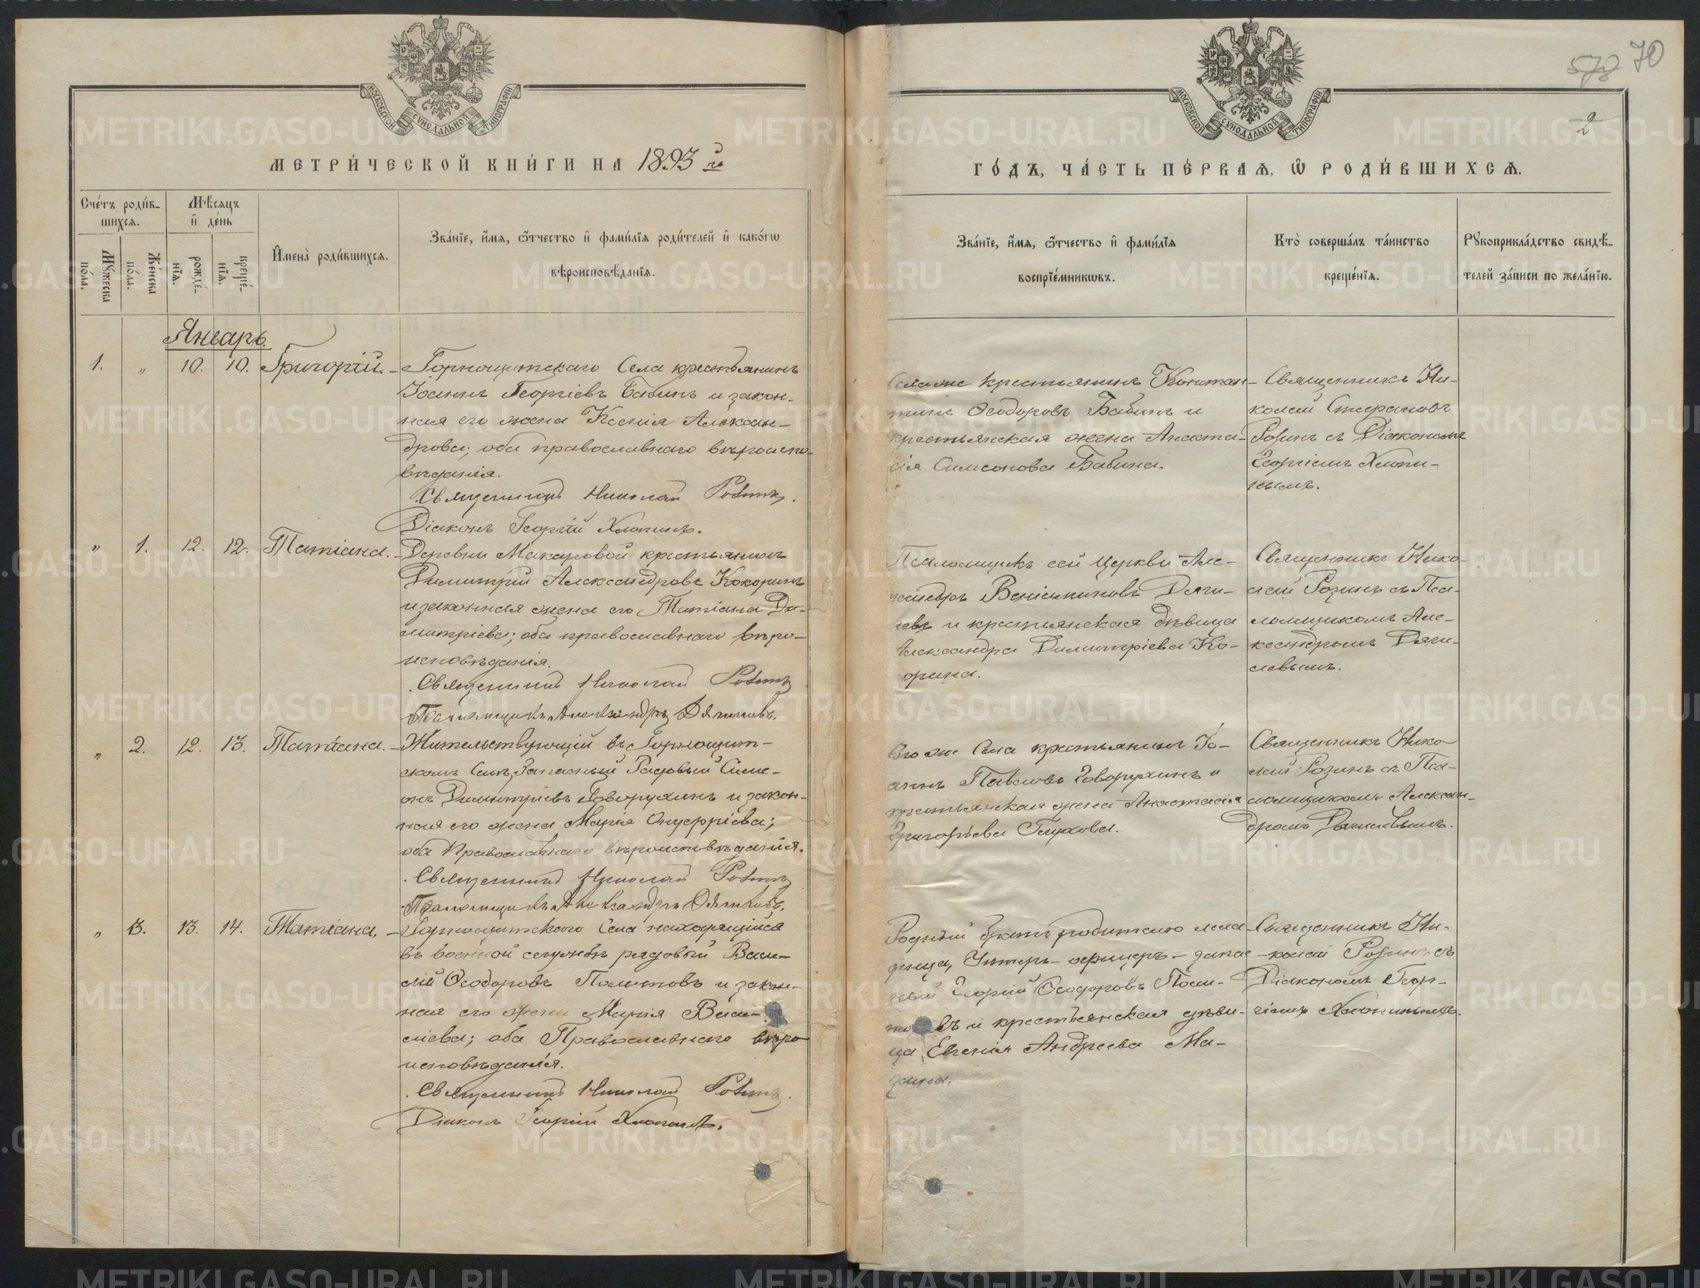 МЕТРИ́ЧЕСКОЙ КНИ́ГИ НА 1893 й
Сче́тъ роди́в-
шихся.
Мѣ́сяцъ
и́ де́нь
Му́жеска
по́ла.
Же́нска
по́ла.
рожде́-
нїя.
креще́-
нїя.
И҆мена̀ роди́вшихся.
Зва́нїе, и҆́мя, ѻ҆́тчество и҆ фами́лїя роди́телей и҆ како́гѡ
вѣроисповѣ́данїя.
Январь
1. „ 10. 10. Григорій. Горнощитскаго Села крестьянинъ
Іоаннъ Георгіевъ Бабинъ и закон-
ная его жена Ксенія Алексан-
дрова; оба православнаго вѣроиспо-
вѣданія.
Священникъ Николай Розинъ.
Діаконъ Георгій Хлопинъ.
„ 1. 12. 12. Татіана. Деревни Макаровой крестьянинъ
Димитрій Александровъ Кокоринъ
и законная жена его Татіана Ди-
митріева; оба православнаго вѣро-
исповѣданія.
Священникъ Николай Розинъ
Псаломщикъ Александръ Дягилевъ.
„ 2. 12. 13. Татіана. Жительствующій въ Горнощит-
скомъ Селѣ, Запасный Рядовый Симе-
онъ Димитріевъ Говорухинъ и закон-
ная его жена Марія Онуфріева;
оба Православнаго вѣроисповѣданія.
Священникъ Николай Розинъ
Псаломщикъ Александръ Дягилевъ.
„ 3. 13. 14. Татіана. Горнощитскаго Села находящійся
въ военной службѣ рядовый Васи-
лій Ѳеодоровъ Политовъ и закон-
ная его жена Марія Васи-
ліева; оба Православнаго вѣро
исповѣданія.
Священникъ Николай Розинъ.
Діаконъ Георгій Хлопинъ.
573 70
2
ГО́ДЪ, ЧА́СТЬ ПЕ́РВАЯ, Ѡ҆ РОДИ́ВШИХСЯ.
Зва́нїе, и҆́мя, ѻ҆́тчество и҆ фами́лїя
воспрїе́мникѡвъ.
Кто̀ соверша́лъ та́инство
креще́нїя.
Рукоприкла́дство свидѣ́-
телей за́писи по жела́нїю.
Села же крестьянинъ Констан-
тинъ Ѳеодоровъ Бабинъ и
крестьянская жена Анаста-
сія Симеонова Бабина.
Священникъ Ни-
колай Стефановъ
Розинъ съ Діакономъ
Георгіемъ Хлопи-
нымъ.
Псаломщикъ сей церкви Але-
ксандръ Веніаминовъ Дяги-
левъ и крестьянская дѣвица
Александра Димитріева Ко-
корина.
Священникъ Нико-
лай Розинъ съ Пса-
ломщикомъ Але-
ксандромъ Дяги-
левымъ.
Того же Села крестьянинъ Іо-
аннъ Павловъ Говорухинъ и
крестьянская жена Анастасія
Григорьева Глухова.
Священникъ Нико-
лай Розинъ съ Пса-
ломщикомъ Алексан-
дромъ Дягилевымъ.
Родный братъ родителю мла-
денца, Унтеръ-офицеръ-запас-
ный Георгій Ѳеодоровъ Поли-
товъ и крестьянская дѣви-
ца Евгенія Андреева Ма-
Священникъ Ни-
колай Розинъ съ
Діакономъ Геор-
гіемъ Хлопинымъ.
METRIKI.GASO-URAL.RU